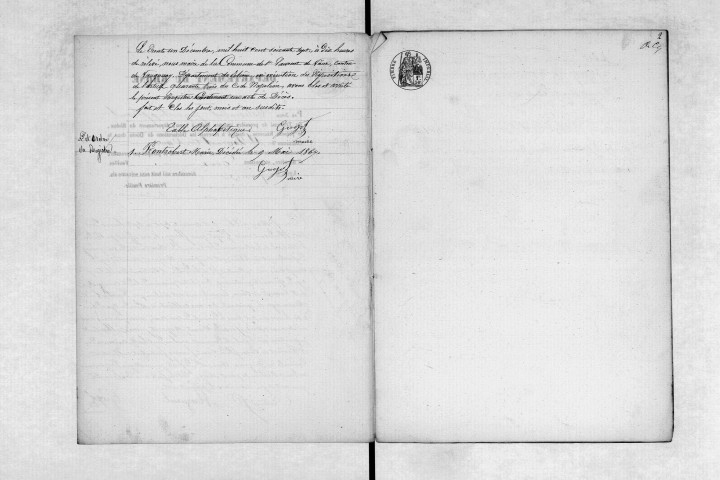 Le trente un Décembre, mil huit cent soixante sept, à Dix heures
du soir, nous maire de la Commune de St Laurent de Vaux, Canton
de Vaugneray, Département du Rhône, en exécution des Dispositions
de l'article quarante trois du Code Napoléon, avons clos et arrêté
le présent Registre contenant un acte de Décès.
fait et clos les jour, mois et an susdits.
Table Alphabétique
maire
Marie Décédée le 9 Mai 1867
maire